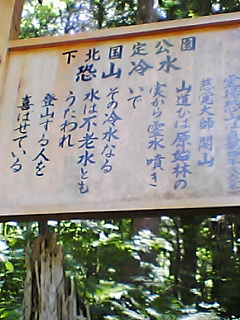 下北国定公園
恐山冷水
慈覚大師開山
山道ひば原始林の
実から霊水噴き
いで
その冷水なる
水は不老水とも
うたわれ
登山する人を
喜ばせている